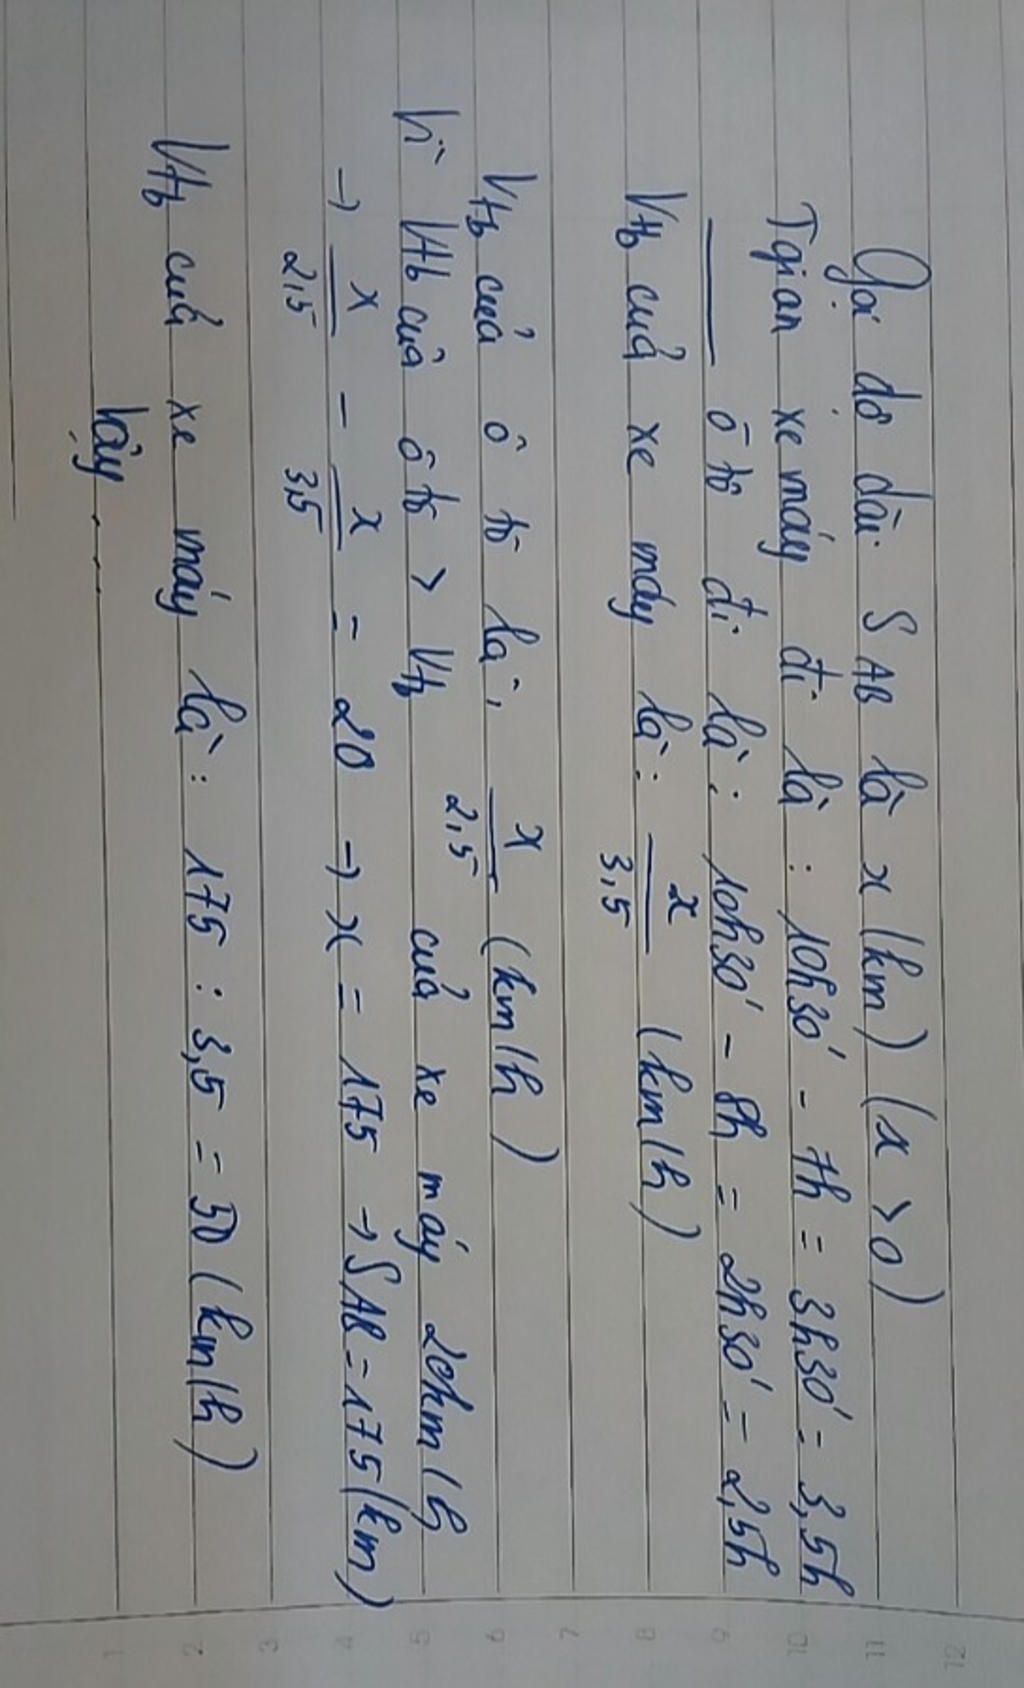 Gọi độ dài S AB là x (km) (x > 0)
Tgian xe máy đi là : 10h30' - 7h = 3h30' = 3,5h
——— ô tô đi là : 10h30' - 8h = 2h30' = 2,5h
Vtb của xe máy là : x/3,5 (km/h)
Vtb của ô tô là : x/2,5 (km/h)
Vì Vtb của ô tô > Vtb của xe máy 20km/h
→ x/2,5 - x/3,5 = 20 → x = 175 → SAB = 175 (km)
Vtb của xe máy là : 175 : 3,5 = 50 (km/h)
Vậy ....
12
11
10
9
8
7
6
5
4
3
2
1